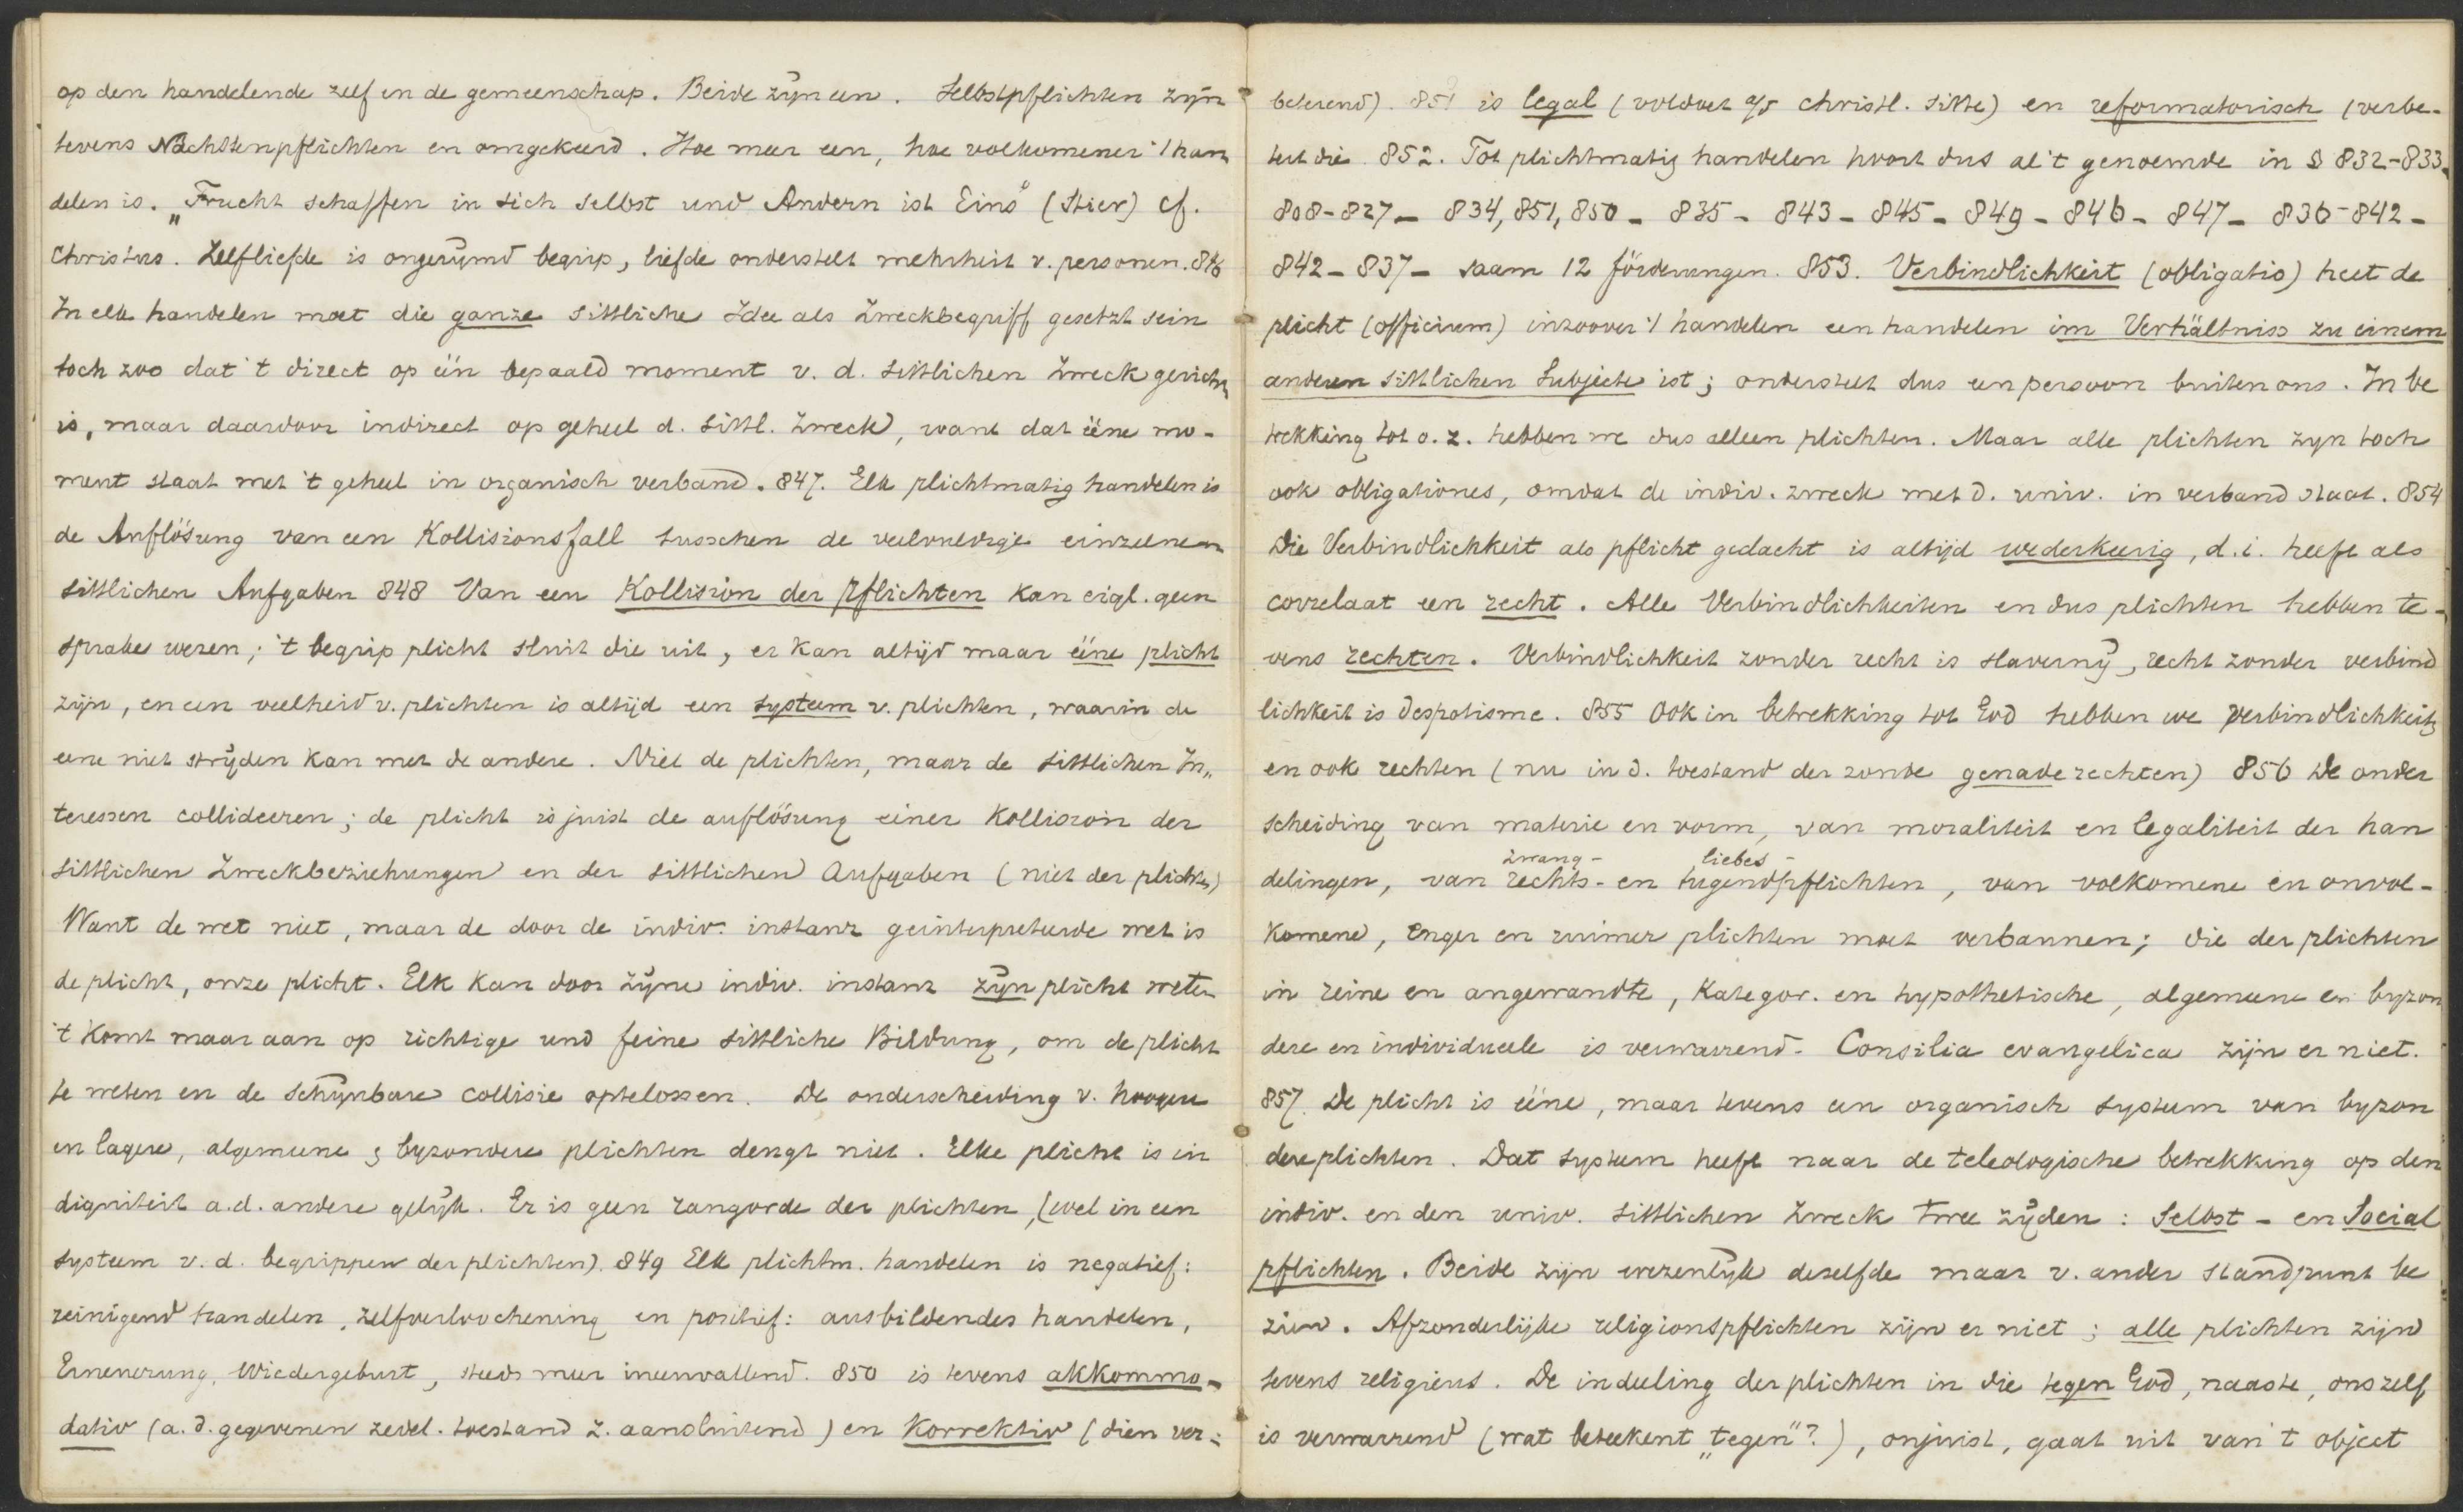 op den handelende zelf en de gemeenschap. Beide zijn een. Selbstpflichten zijn
tevens Nächstenpflichten en omgekeerd. Hoe meer een, hoe volkomener 't han
delen is. „Frucht schaffen in sich selbst und Andern ist Eins" (Stier) cf.
Christus. Zelfliefde is ongerijmd begrip, liefde onderstelt mehrheit v. personen. 846
In elk handelen moet die ganze sittliche Idee als Zweckbegriff gesetzt sein
toch zoo dat 't direct op één bepaald moment v. d. sittlichen Zweck gericht
is, maar daardoor indirect op geheel d. sittl. Zweck, want dat ééne mo-
ment staat met 't geheel in organisch verband. 847. Elk plichtmatig handelen is
de Auflösung van een Kollisionsfall tusschen de veelvuldige einzelnen
sittlichen Aufgaben 848 Van een Kollision der Pflichten kan eigl. geen
sprake wezen; 't begrip plicht sluit die uit, er kan altijd maar ééne plicht
zijn, en een veelheid v. plichten is altijd een systeem v. plichten, waarin de
eene niet strijden kan met de andere. Niet de plichten, maar de sittlichen In„
teressen collideeren; de plicht is juist de auflösung einer Kollision der
sittlichen Zweckbeziehungen en der sittlichen Aufgaben (niet der plichten)
Want de wet niet, maar de door de indiv. instanz geïnterpreteerde wet is
de plicht, onze plicht. Elk kan door zijne indiv. instanz zijn plicht weten
't komt maar aan op richtige und feine sittliche Bildung, om de plicht
te weten en de schijnbare collisie optelossen. De onderscheiding v. hoogere
en lagere, algemeene & byzondere plichten deugt niet. Elke plicht is in
digniteit a.d. andere gelijk. Er is geen rangorde der plichten, (wel in een
systeem v. d. begrippen der plichten). 849 Elk plichtm. handelen is negatief:
reinigend handelen, zelfverloochening en positief: ausbildendes handelen,
Erneuerung, Wiedergeburt, steeds meer ineenvallend. 850 is tevens akkommo-
dativ (a. d. gegevenen zedel. toestand z. aansluitend) en Korrektiv (dien ver-
beterend). 851 is legal (voldoet a/d christl. sitte) en reformatorisch (verbe-
tert die. 852. Tot plichtmatig handelen hoort dus al 't genoemde in § 832-833.
808-827 - 834, 851, 850 - 835 - 843 - 845 - 849 - 846 - 847 - 836-842 -
842 - 837 - saam 12 förderungen. 853. Verbindlichkeit (obligatio) heet de
plicht (officium) inzoover 't handelen een handelen im Verhältniss zu einem
anderen sittlichen Subjecte ist; onderstelt dus een persoon buiten ons. In be
trekking tot o. z. hebben we dus alleen plichten. Maar alle plichten zyn toch
ook obligationes, omdat de indiv. zweck met d. univ. in verband staat. 854
Die Verbindlichkeit als pflicht gedacht is altijd wederkeerig, d. i. heeft als
correlaat een recht. Alle Verbindlichkeiten en dus plichten hebben te-
vens rechten. Verbindlichkeit zonder recht is slavernij, recht zonder verbind
lichkeit is despotisme. 855 Ook in betrekking tot God hebben we Verbindlichkeiten
en ook rechten (nu in d. toestand der zonde genade rechten) 856 De onder
scheiding van materie en vorm, van moraliteit en legaliteit der han
zwang- liebes-
delingen, van rechts- en tugendpflichten, van volkomene en onvol-
komene, enger en ruimer plichten moet verbannen; die der plichten
in reine en angewandte, kategor. en hypothetische, algemeene en byzon
dere en individueele is verwarrend. Consilia evangelica zijn er niet.
857. De plicht is ééne, maar tevens een organisch systeem van byzon
dere plichten. Dat systeem heeft naar de teleologische betrekking op den
indiv. en den univ. sittlichen Zweck twee zijden: Selbst- en Social
pflichten. Beide zijn wezenlijk dezelfde maar v. ander standpunt be
zien. Afzonderlijke religionspflichten zijn er niet; alle plichten zijn
tevens religieus. De indeeling der plichten in die tegen God, naaste, ons zelf
is verwarrend (wat beteekent „tegen"?), onjuist, gaat uit van 't object